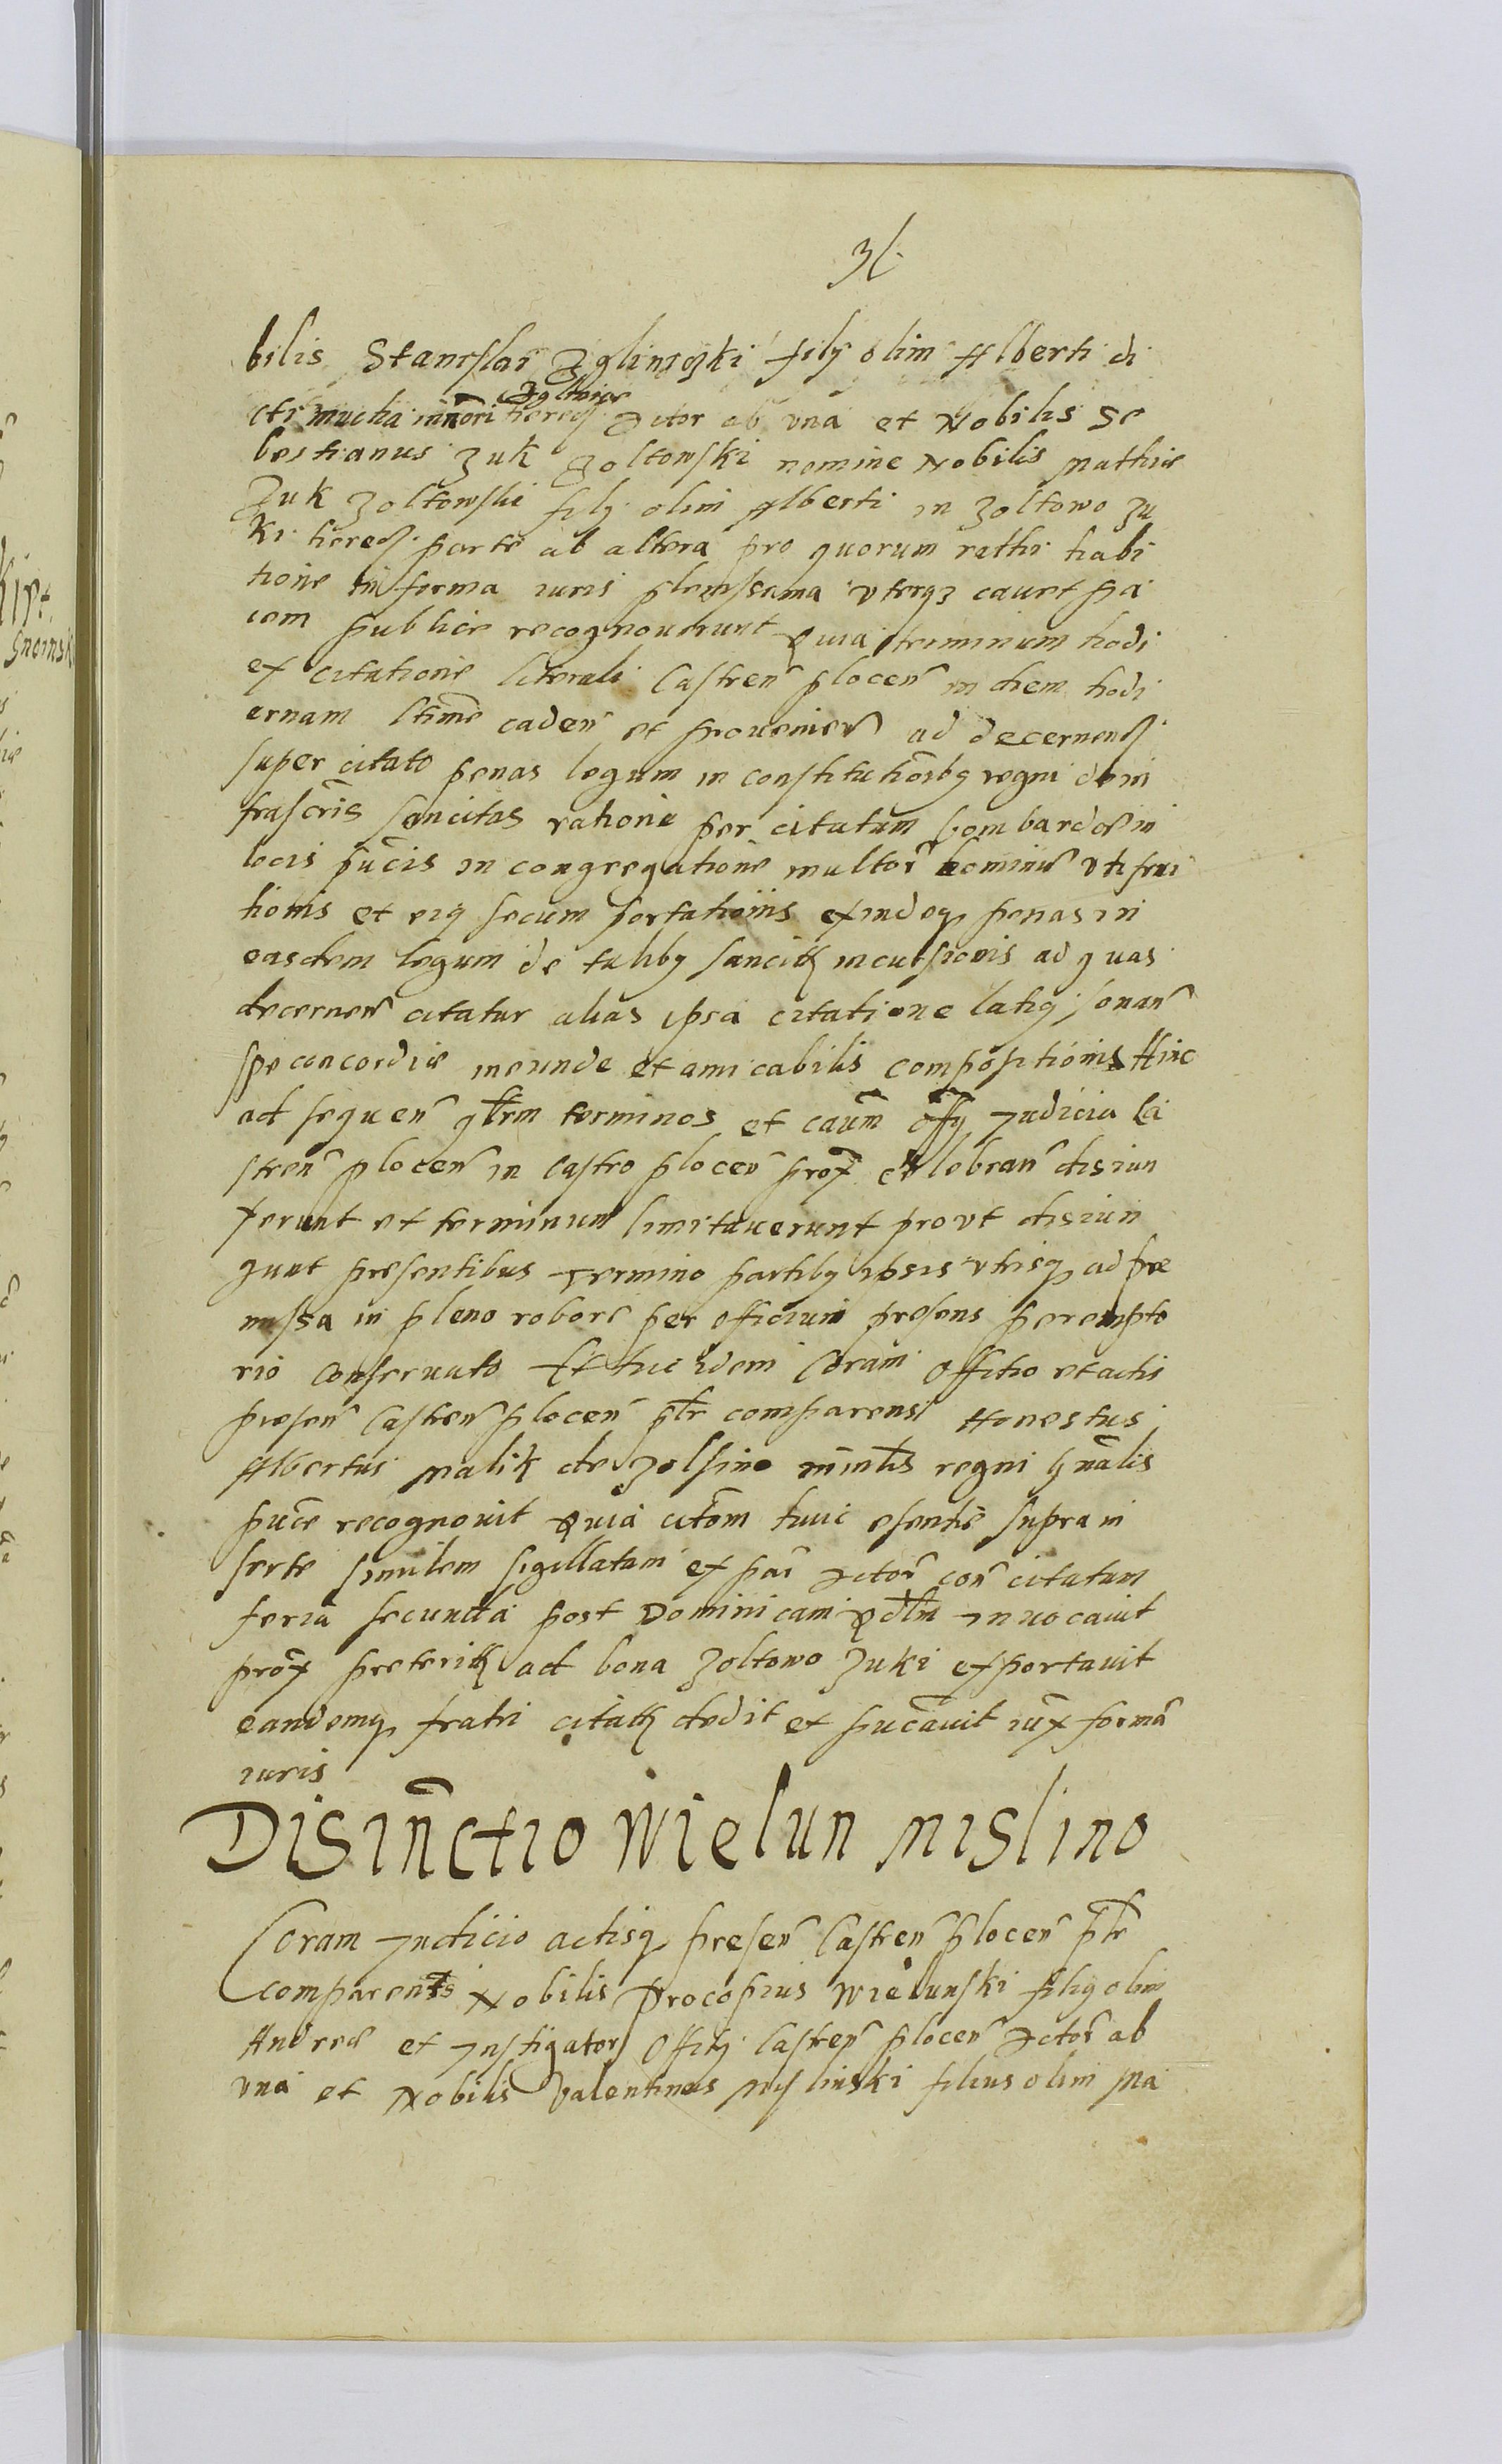 bilis Stanislai Zglinyczki filÿ olim Alberti di
cti mucha in Zglinice heredẽ Actor ab vna et Nobilis Se
bestianus Zuk Zoltowski nomine Nobilis Mathie
Zuk Zoltowski filÿ olim Alberti in Zoltowo Zu
ki hered. parte ab altera pro quorum rathi habi
tione in forma iuris plenissama vterqz cauet pa
lam publice recognouerunt Quia terminum hodi
ex citatione literali Castren̄ plocen̄ in diem hodi
ernam ltime caden̄ et prouenien̄ ad decernend.
super citato penas legum in constitutionibꝫ regni de in
frascris̄ sancitas ratione per citatum bombardę in
locis pūcis in congregatione multor̄ hominū vti frui
tionis et eiꝫ secum portationis exindeqꝫ penas in
easdem legum de talibꝫ sancit. incursionis ad quas
decernen̄ citatur alias ipsa citatione latiꝫ sonan̄
spe concordie ineunde et amicabilis compositionis Hinc
ad sequen̄ qr̄lem terminos et caūm offÿ Judicia Ca
stren̄ plocen̄ in castro plocen̄ prox̄ celebran̄ disiun
xerunt et terminum limitauerunt prout disiun
gunt presentibus Termino partibꝫ ipsis vtrisqꝫ ad pre
missa in pleno robore per officium presens perempto
rio conseruato Et hic idem Coram Officio et actis
presen̄ Castren̄ plocen̄ pl̄r comparens Honestus
Albertus Malik de Zolsino mīnlis regni gn̄alis
puc̄e recognouit Quia citōm huic esentie supra in
serte similem sigillatam ex pār Actor̄ con̄ citatum
feria secunda post Dominicam Qdl̄m Inuocauit
prox̄ preterit. ad bona Zoltowo Zuki exportauit
eandemqꝫ fratri citati dedit et puc̄auit iūx formā
iuris
Disiūnctio Wielun Mislino
Coram Judicio actisqꝫ presen̄ Castren̄ plocen̄ pl̄r
comparentes Nobilis Procopius Wielunski filiꝫ olim
Andreę et Instigator Offitÿ Castren̄ plocen̄ Actor̄ ab
vna et Nobilis Valentinus Myslinski filius olim Ma